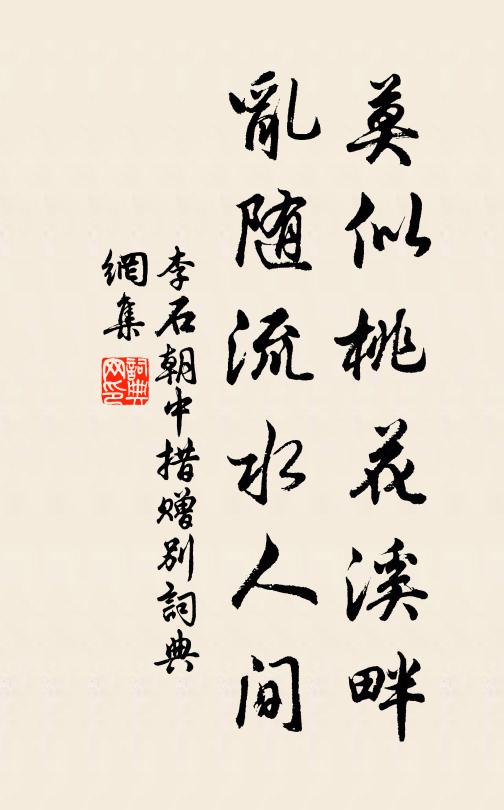 莫似桃花溪畔
亂随流水人间
李石朝中措贈别詞典
網集
詞典網印